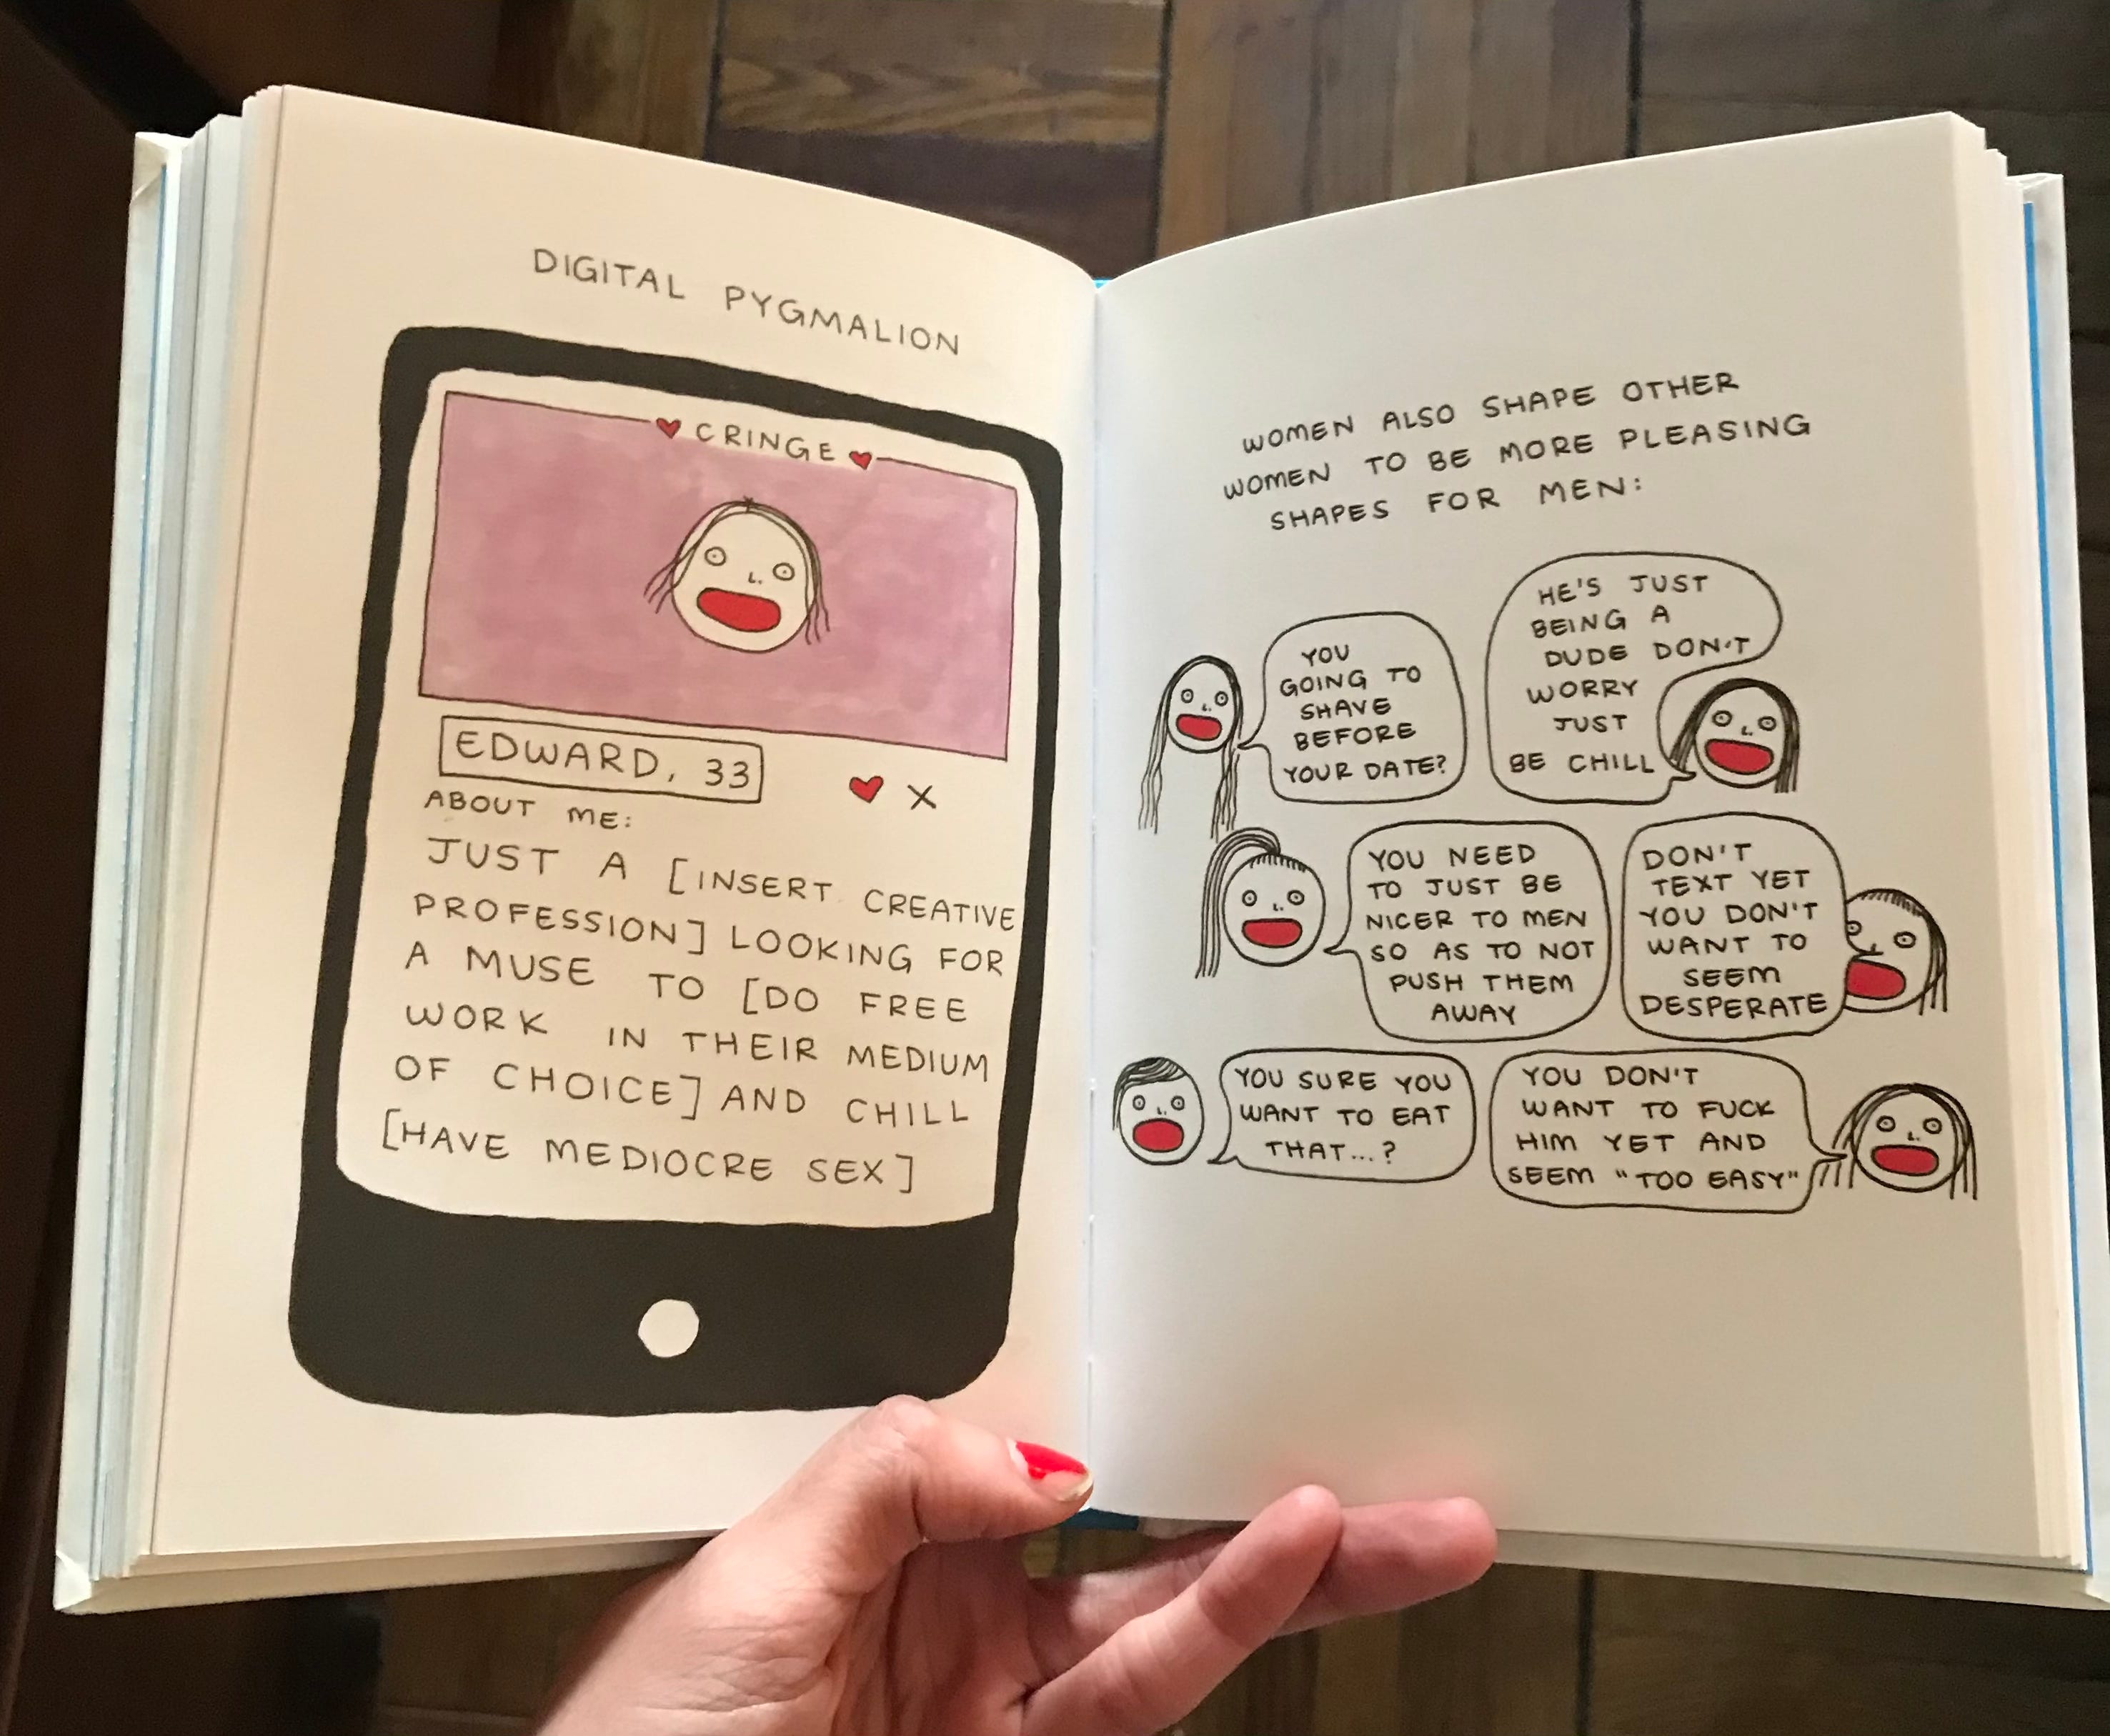 DIGITAL PYGMALION
CRINGE
EDWARD, 33
X
ABOUT ME:
JUST A [INSERT CREATIVE
PROFESSION] LOOKING FOR
A MUSE TO [DO FREE
WORK IN THEIR MEDIUM
OF CHOICE] AND CHILL
[HAVE MEDIOCRE SEX]
WOMEN ALSO SHAPE OTHER
WOMEN TO BE MORE PLEASING
SHAPES FOR MEN:
YOU
GOING TO
SHAVE
BEFORE
YOUR DATE?
HE'S JUST
BEING A
DUDE DON'T
WORRY
JUST
BE CHILL
YOU NEED
TO JUST BE
NICER TO MEN
SO AS TO NOT
PUSH THEM
AWAY
DON'T
TEXT YET
YOU DON'T
WANT TO
SEEM
DESPERATE
YOU SURE YOU
WANT TO EAT
THAT...?
YOU DON'T
WANT TO FUCK
HIM YET AND
SEEM "TOO EASY"